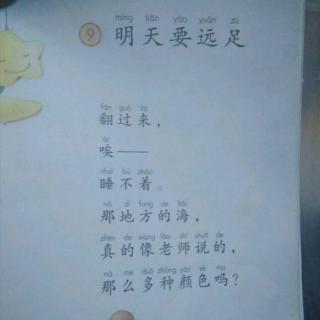 míng tiān yào yuǎn zú
9 明天要远足
fān guò lái
翻过来，
ài
唉——
shuì bù zháo
睡不着。
nà dì fang de hǎi
那地方的海，
zhēn de xiàng lǎo shī shuō de
真的像老师说的，
nà me duō zhǒng yán sè ma
那么多种颜色吗？